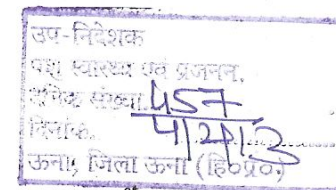 उप-निदेशक
पशु स्वास्थ्य एवं प्रजनन,
दैनिक संख्या 457
दिनांक. 4/2/13
ऊना, जिला ऊना (हि०प्र०)